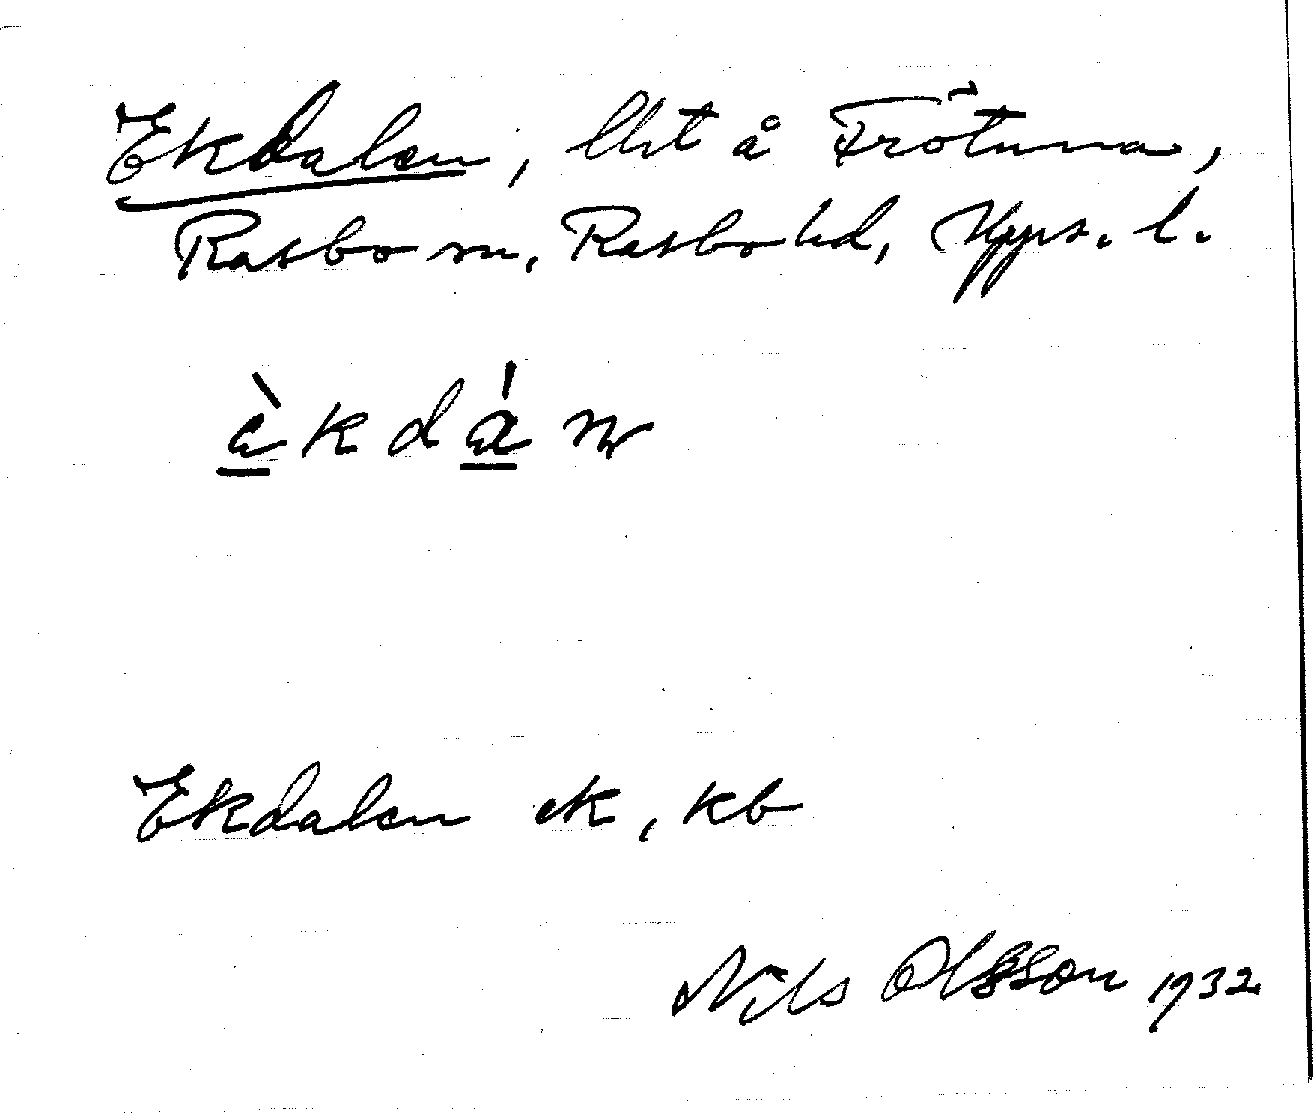 Ekdalen, lht å Frötuna,
Rasbo sn, Rasbo hd, Upps. l.
Ekdalen ek, kb
Nils Olsson 1932